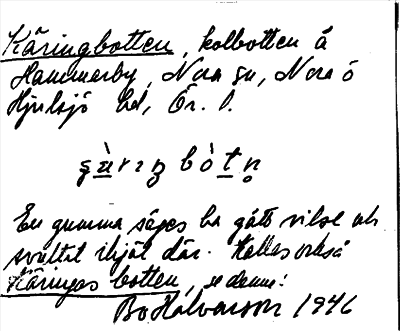 Käringbotten, kolbotten å
Hammarby, Nora sn, Nora o
Hjulsjö hd, Ör. l.
En gumma säges ha gått vilse och
svultit ihjäl där. Kallas också
Käringas botten, se denna!
Bo Halvarson 1946